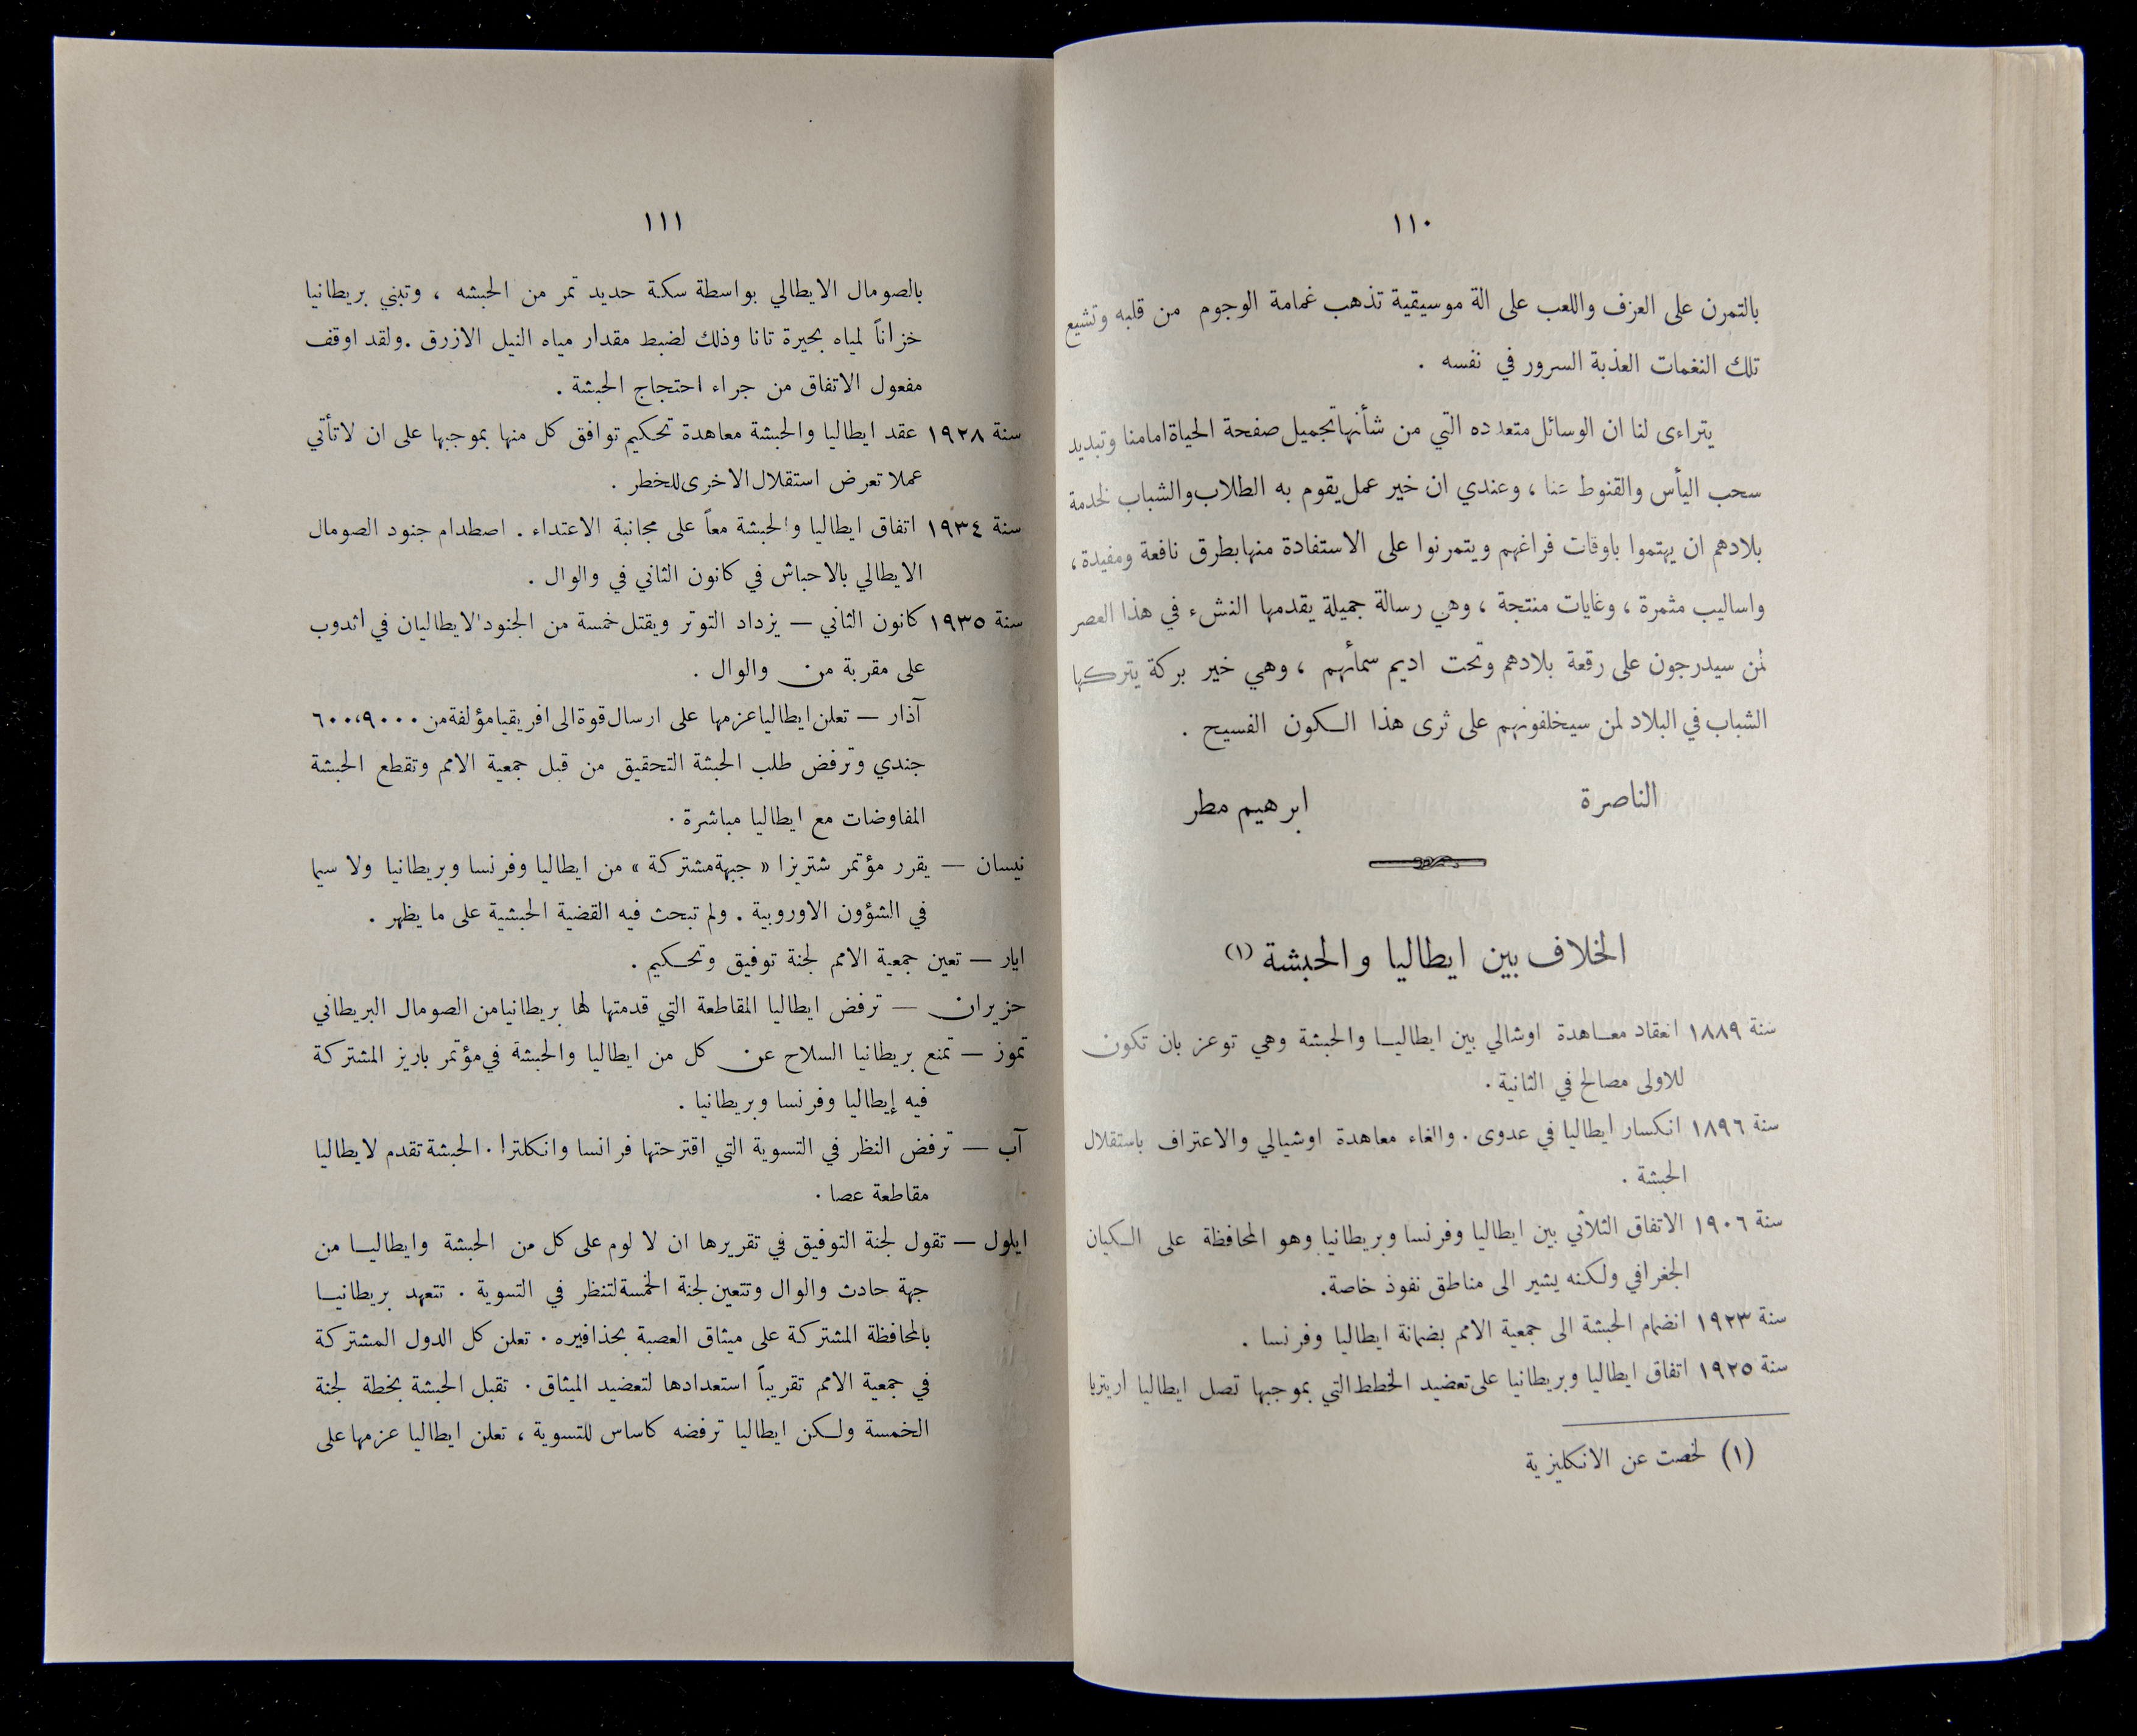 ١١٠
بالتمرن على العزف واللعب على الة موسيقية تذهب غمامة الوجوم من قلبه وتشيع
تلك النغمات العذبة السرور في نفسه .
يتراءى لنا ان الوسائل متعدده التي من شأنها تجميل صفحة الحياة امامنا وتبديد
سحب اليأس والقنوط عنا ، وعندي ان خير عمل يقوم به الطلاب والشباب لخدمة
بلادهم ان يهتموا باوقات فراغهم ويتمرنوا على الاستفادة منها بطرق نافعة ومفيدة ،
واساليب مثمرة ، وغايات منتجة ، وهي رسالة جميلة يقدمها النشء في هذا العصر
لمن سيدرجون على رقعة بلادهم وتحت اديم سمائهم ، وهي خير بركة يتركها
الشباب في البلاد لمن سيخلفونهم على ثرى هذا الكون الفسيح .
الناصرة ابرهيم مطر
الخلاف بين ايطاليا والحبشة (١)
سنة ١٨٨٩ انعقاد معاهدة اوشالي بين ايطاليا والحبشة وهي توعز بان تكون
للاولى مصالح في الثانية .
سنة ١٨٩٦ انكسار ايطاليا في عدوى . والغاء معاهدة اوشيالي والاعتراف باستقلال
الحبشة .
سنة ١٩٠٦ الاتفاق الثلاثي بين ايطاليا وفرنسا وبريطانيا وهو المحافظة على الكيان
الجغرافي ولكنه يشير الى مناطق نفوذ خاصة .
سنة ١٩٢٣ انضمام الحبشة الى جمعية الامم بضمانة ايطاليا وفرنسا .
سنة ١٩٢٥ اتفاق ايطاليا وبريطانيا على تعضيد الخطط التي بموجبها تصل ايطاليا اريتريا
(١) لخصت عن الانكليزية
١١١
بالصومال الايطالي بواسطة سكة حديد تمر من الحبشه ، وتبني بريطانيا
خزاناً لمياه بحيرة تانا وذلك لضبط مقدار مياه النيل الازرق . ولقد اوقف
مفعول الاتفاق من جراء احتجاج الحبشة .
سنة ١٩٢٨ عقد ايطاليا والحبشة معاهدة تحكيم توافق كل منها بموجبها على ان لا تأتي
عملا تعرض استقلال الاخرى للخطر .
سنة ١٩٣٤ اتفاق ايطاليا والحبشة معاً على مجانبة الاعتداء . اصطدام جنود الصومال
الايطالي بالاحباش في كانون الثاني في والوال .
سنة ١٩٣٥ كانون الثاني — يزداد التوتر ويقتل خمسة من الجنود الايطاليان في اثدوب
على مقربة من والوال .
آذار — تعلن ايطاليا عزمها على ارسال قوة الى افريقيا مؤلفة من ٦٠٠،٩٠٠٠
جندي وترفض طلب الحبشة التحقيق من قبل جمعية الامم وتقطع الحبشة
المفاوضات مع ايطاليا مباشرة .
نيسان — يقرر مؤتمر شتريزا « جبهة مشتركة » من ايطاليا وفرنسا وبريطانيا ولا سيما
في الشؤون الاوروبية . ولم تبحث فيه القضية الحبشية على ما يظهر .
ايار — تعين جمعية الامم لجنة توفيق وتحكيم .
حزيران — ترفض ايطاليا المقاطعة التي قدمتها لها بريطانيا من الصومال البريطاني
تموز — تمنع بريطانيا السلاح عن كل من ايطاليا والحبشة في مؤتمر باريز المشتركة
فيه إيطاليا وفرنسا وبريطانيا .
آب — ترفض النظر في التسوية التي اقترحتها فرانسا وانكلترا . الحبشة تقدم لايطاليا
مقاطعة عصا .
ايلول — تقول لجنة التوفيق في تقريرها ان لا لوم على كل من الحبشة وايطاليا من
جهة حادث والوال وتتعين لجنة الخمسة لتنظر في التسوية . تتعهد بريطانيا
بالمحافظة المشتركة على ميثاق العصبة بحذافيره . تعلن كل الدول المشتركة
في جمعية الامم تقريباً استعدادها لتعضيد الميثاق . تقبل الحبشة بخطة لجنة
الخمسة ولكن ايطاليا ترفضه كاساس للتسوية ، تعلن ايطاليا عزمها على